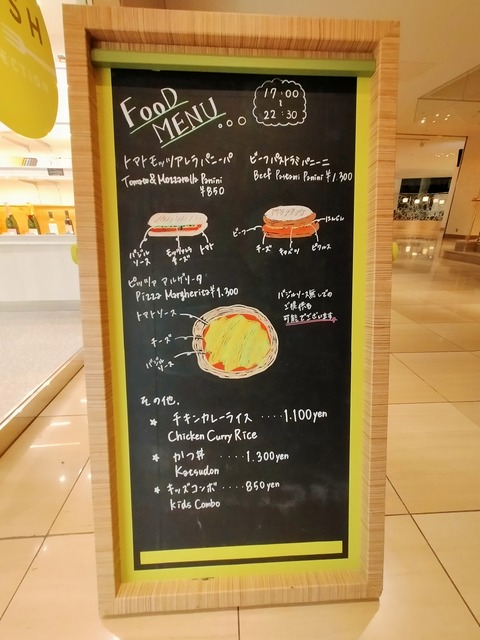 SH
ECTION
FOOD
MENU...
17:00
~
22:30
トマトモッツアレラパニーパ
Tomato&Mozzarella Panini
¥850
ビーフパストラミパニーニ
Beef Pastrami Panini ¥1,300
バジル
ソース
モッツァレラ
チーズ
トマト
ビーフ
チーズ
キャベツ
ピクルス
ピッツァ マルゲリータ
Pizza Margherita ¥1.300
トマトソース
チーズ
バジル
ソース
バジルソース無しでの
ご提供も
可能でございます。
その他.
★ チキンカレーライス ····1.100yen
Chicken Curry Rice
★ かつ丼 ····1.300yen
Katsudon
★ キッズコンボ ····850yen
kids Combo